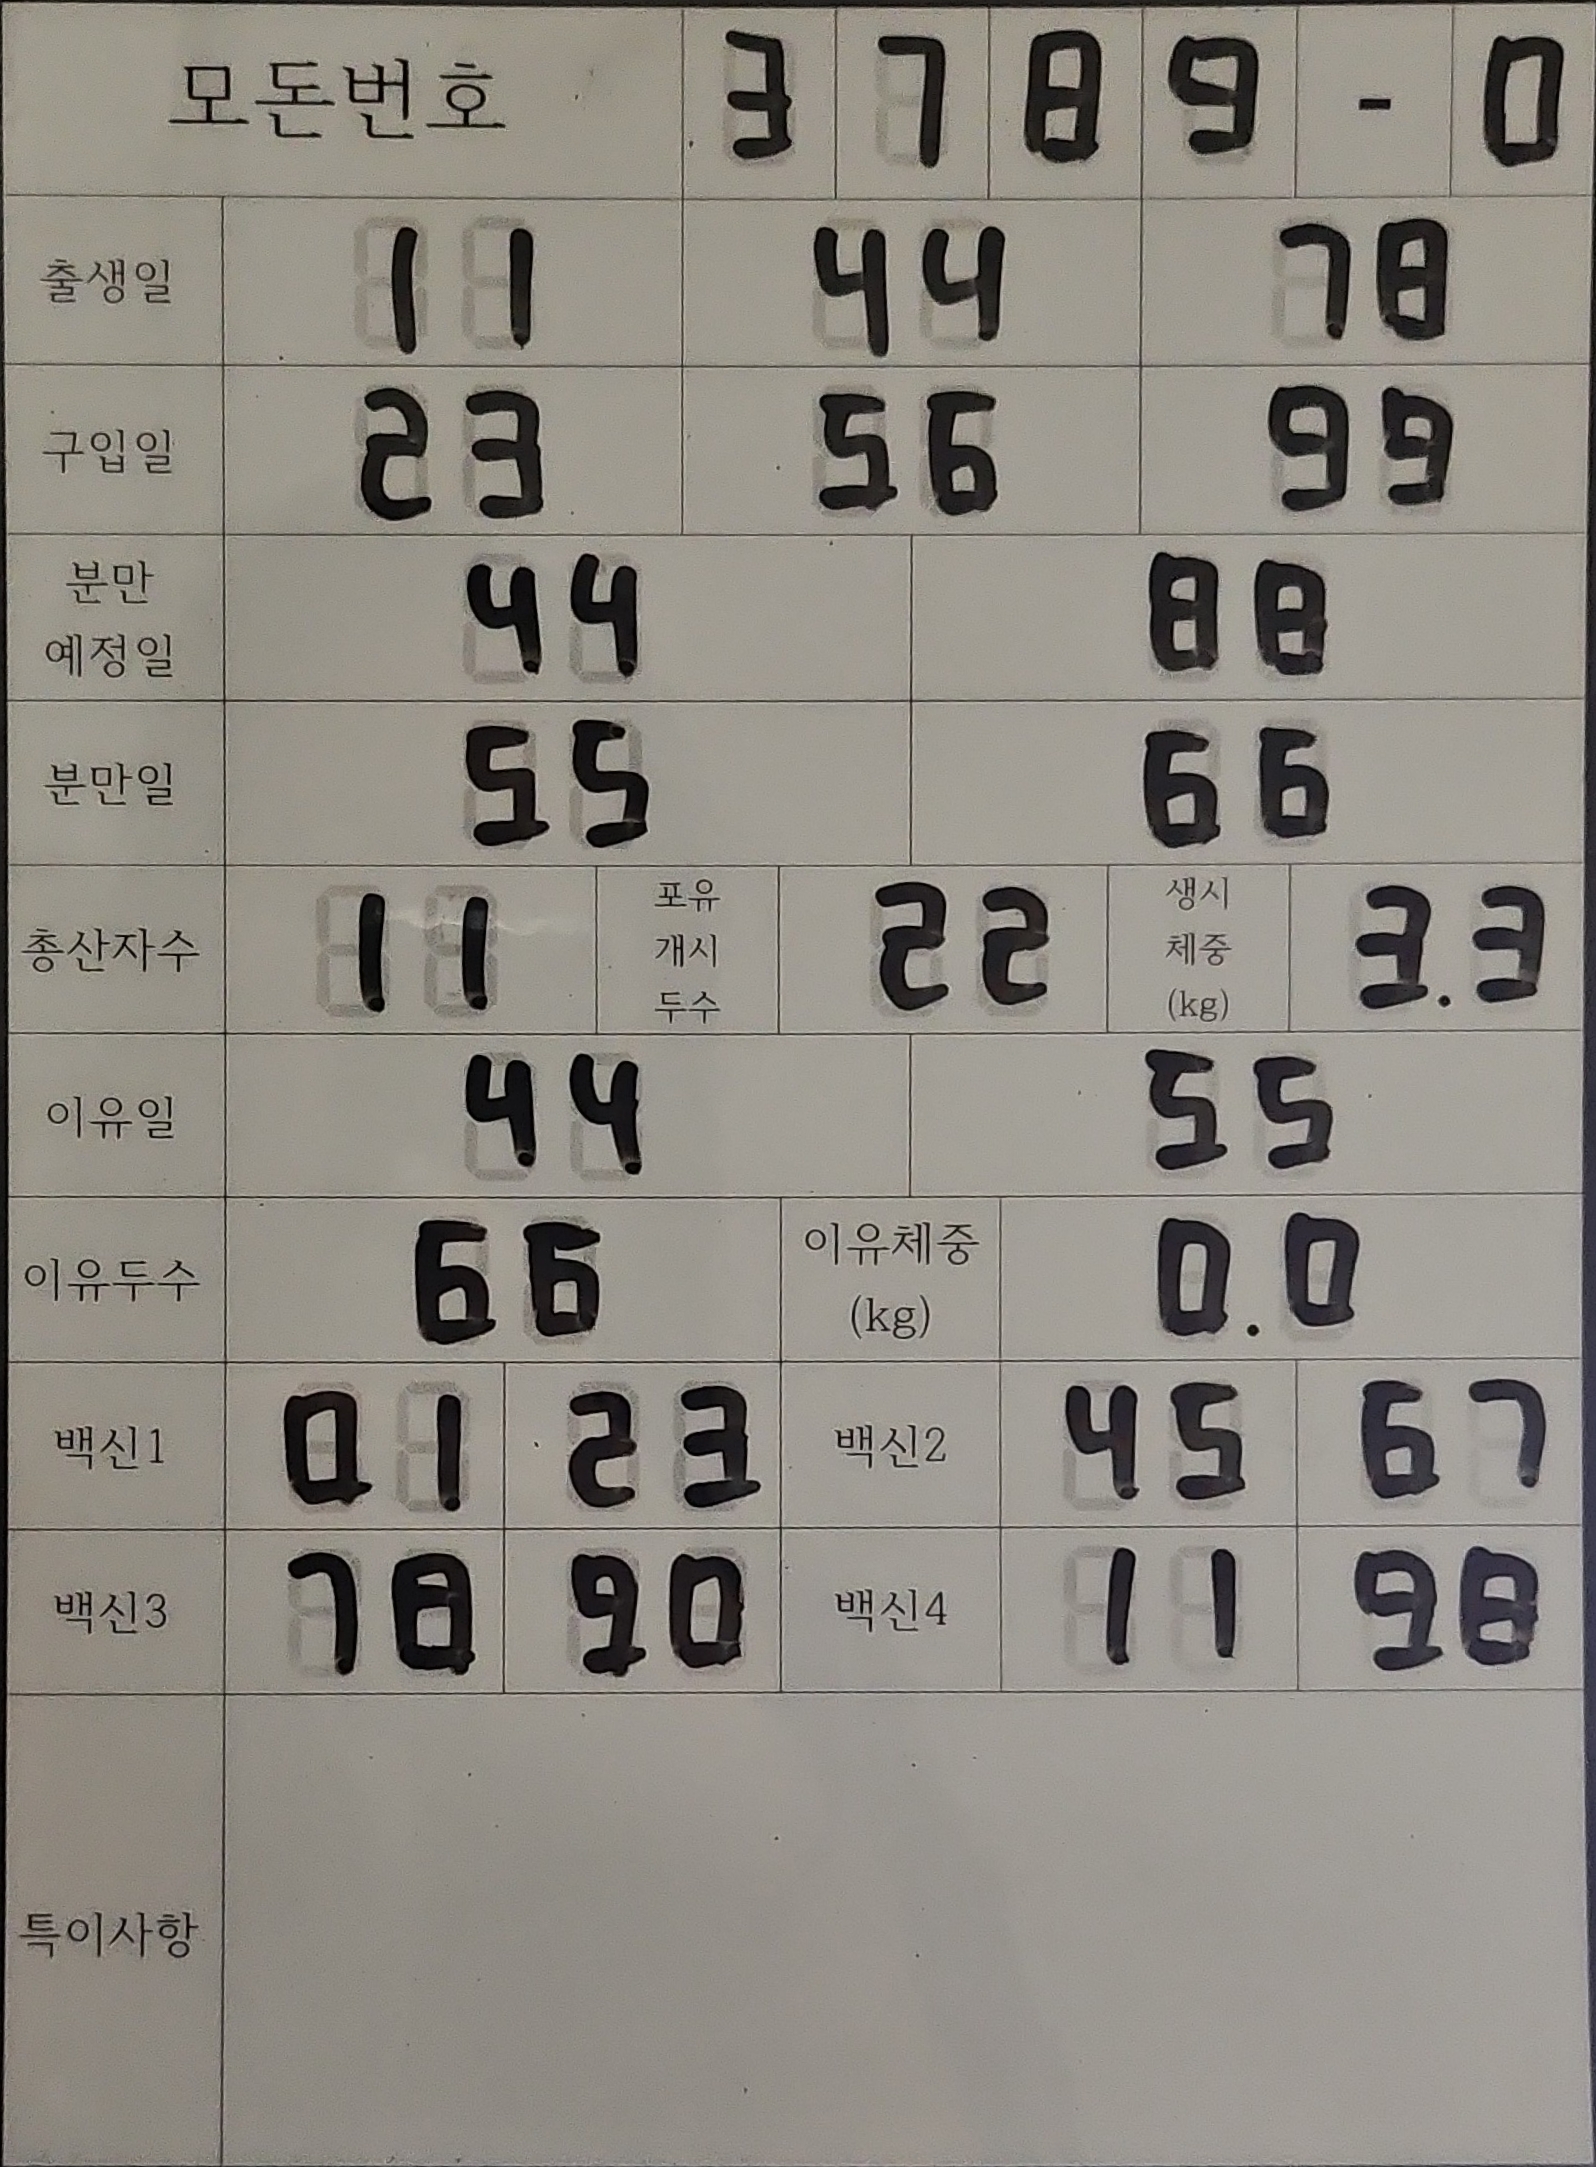 모돈번호 3 7 8 9 - 0
출생일 11 44 78
구입일 23 56 99
분만
예정일 44 88
분만일 55 66
총산자수 11 포유
개시
두수 22 생시
체중
(kg) 3.3
이유일 44 55
이유두수 66 이유체중
(kg) 0.0
백신1 01 23 백신2 45 67
백신3 78 90 백신4 11 98
특이사항